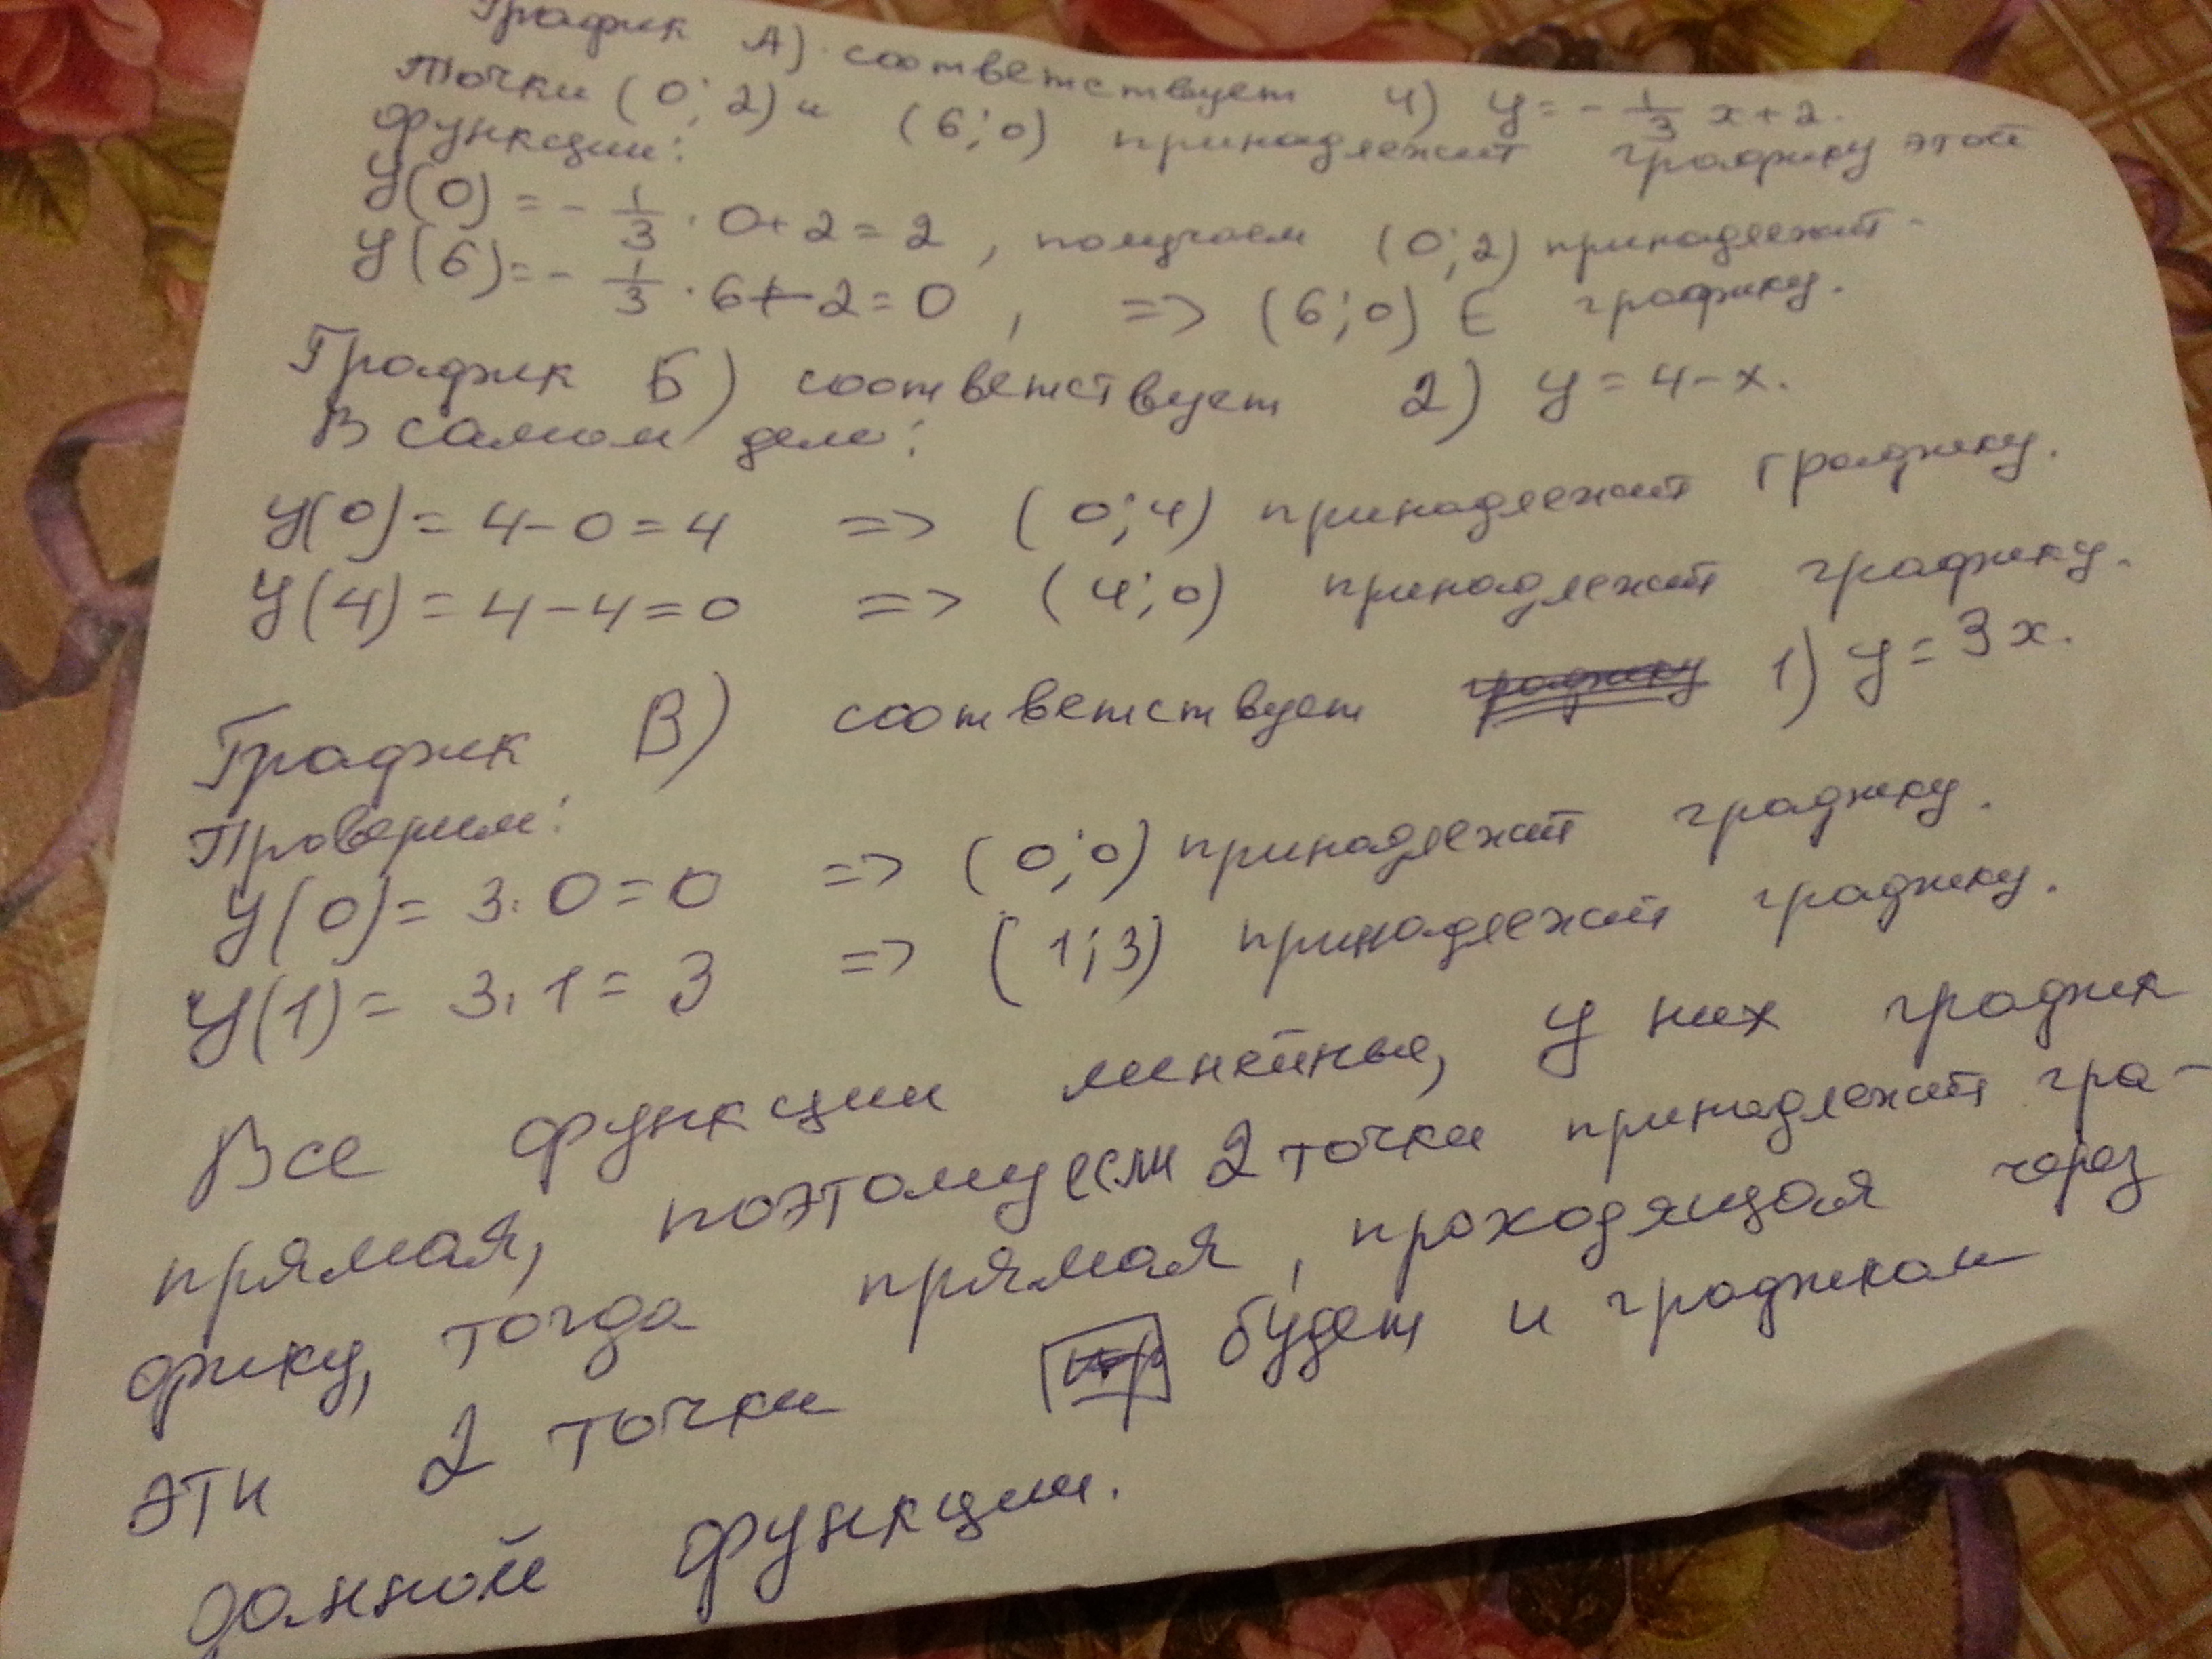 График А) соответствует 4) y = - 1/3 x + 2.
Точки (0; 2) и (6; 0) принадлежит графику этой
функции:
y(0) = - 1/3 · 0 + 2 = 2 , получаем (0; 2) принадлежит
y(6) = - 1/3 · 6 + 2 = 0 , => (6; 0) ∈ графику.
График Б) соответствует 2) y = 4 - x.
В самом деле:
y(0) = 4 - 0 = 4 => (0; 4) принадлежит графику.
y(4) = 4 - 4 = 0 => (4; 0) принадлежит графику.
График В) соответствует графику 1) y = 3x.
Проверим:
y(0) = 3 · 0 = 0 => (0; 0) принадлежит графику.
y(1) = 3 · 1 = 3 => (1; 3) принадлежит графику.
Все функции линейные, у них график
прямая, поэтому если 2 точки принадлежит гра-
фику, тогда прямая, проходящая через
эти 2 точки будет и графиком
данной функции.